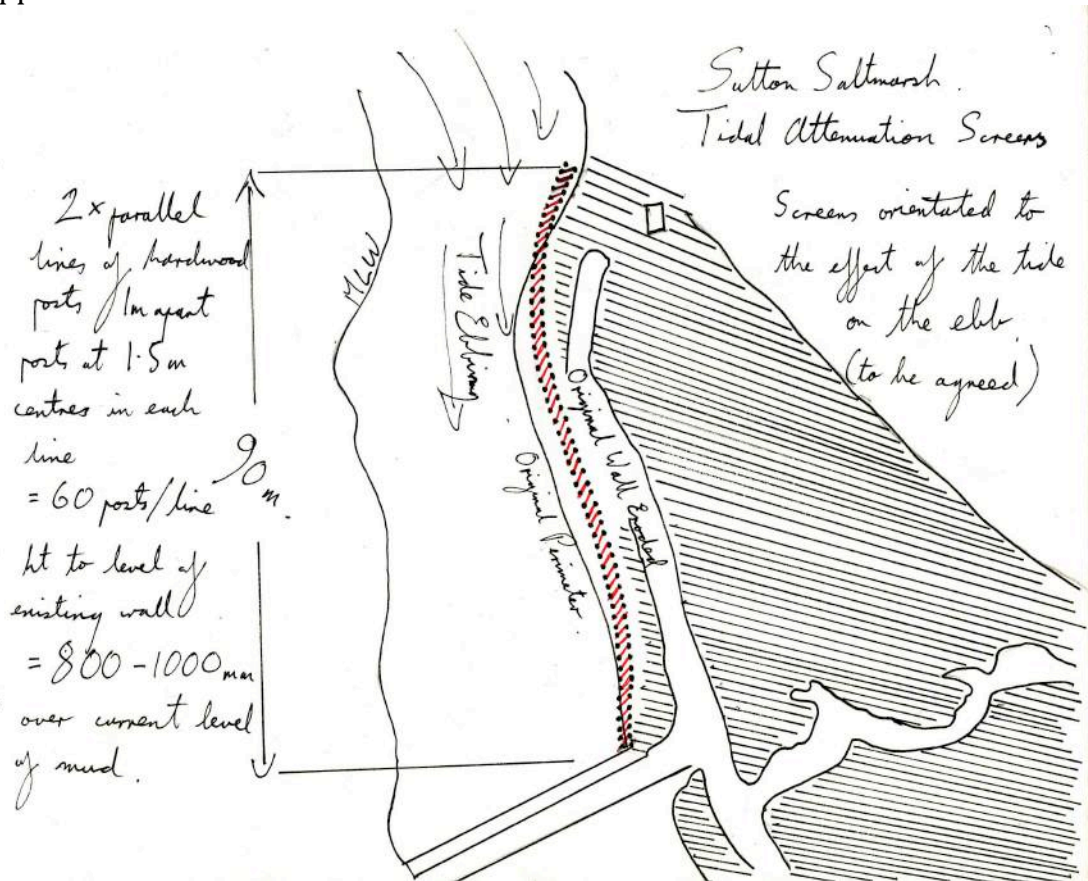 Sutton Saltmarsh.
Tidal Attenuation Screens
Screens orientated to
the effect of the tide
on the ebb
(to be agreed)
2 x parallel
lines of hardwood
posts 1m apart
posts at 1.5m
centres in each
line
= 60 posts/line
ht to level of
existing wall
= 800-1000mm
over current level
of mud.
90m.
MLW
Tide Ebbing
Original Perimeter.
Original Wall Eroded